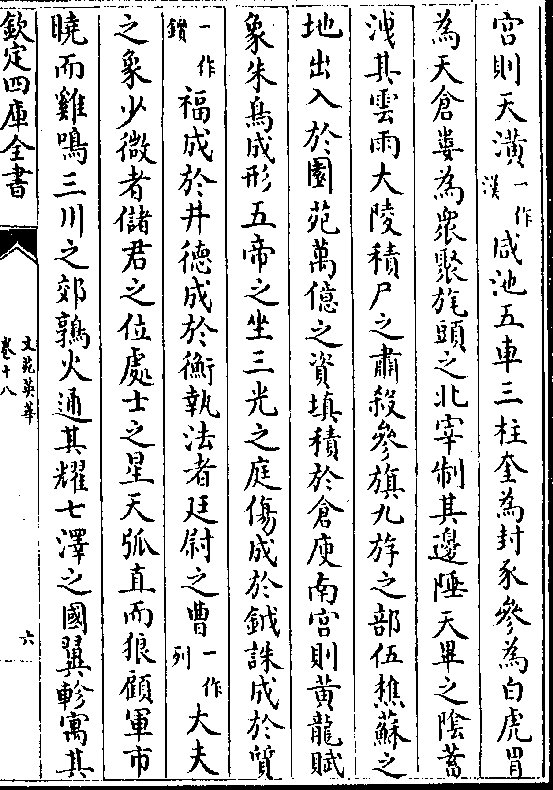 宫則天潢一作漢咸池五車三柱奎為封豕參為白虎胃
為天倉婁為衆聚旄頭之北宰制其邊陲天畢之陰蓄
洩其雲雨大陵積尸之肅殺參旗九斿之部伍樵蘇之
地出入於園苑萬億之資填積於倉庾南宫則黄龍賦
象朱鳥成形五帝之坐三光之庭傷成於鉞誅成於質
一作鑕福成於井德成於衡執法者廷尉之曹一作列大夫
之象少微者儲君之位處士之星天弧直而狼顧軍市
曉而雞鳴三川之郊鶉火通其耀七澤之國翼軫寓其
欽定四庫全書
文苑英華
卷十八
六